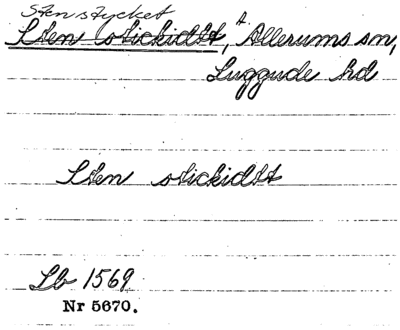 Stenstycket
Sten stickidtt, t Allerums sn,
Luggude hd
Sten stickidtt
Lb 1569
Nr 5670.